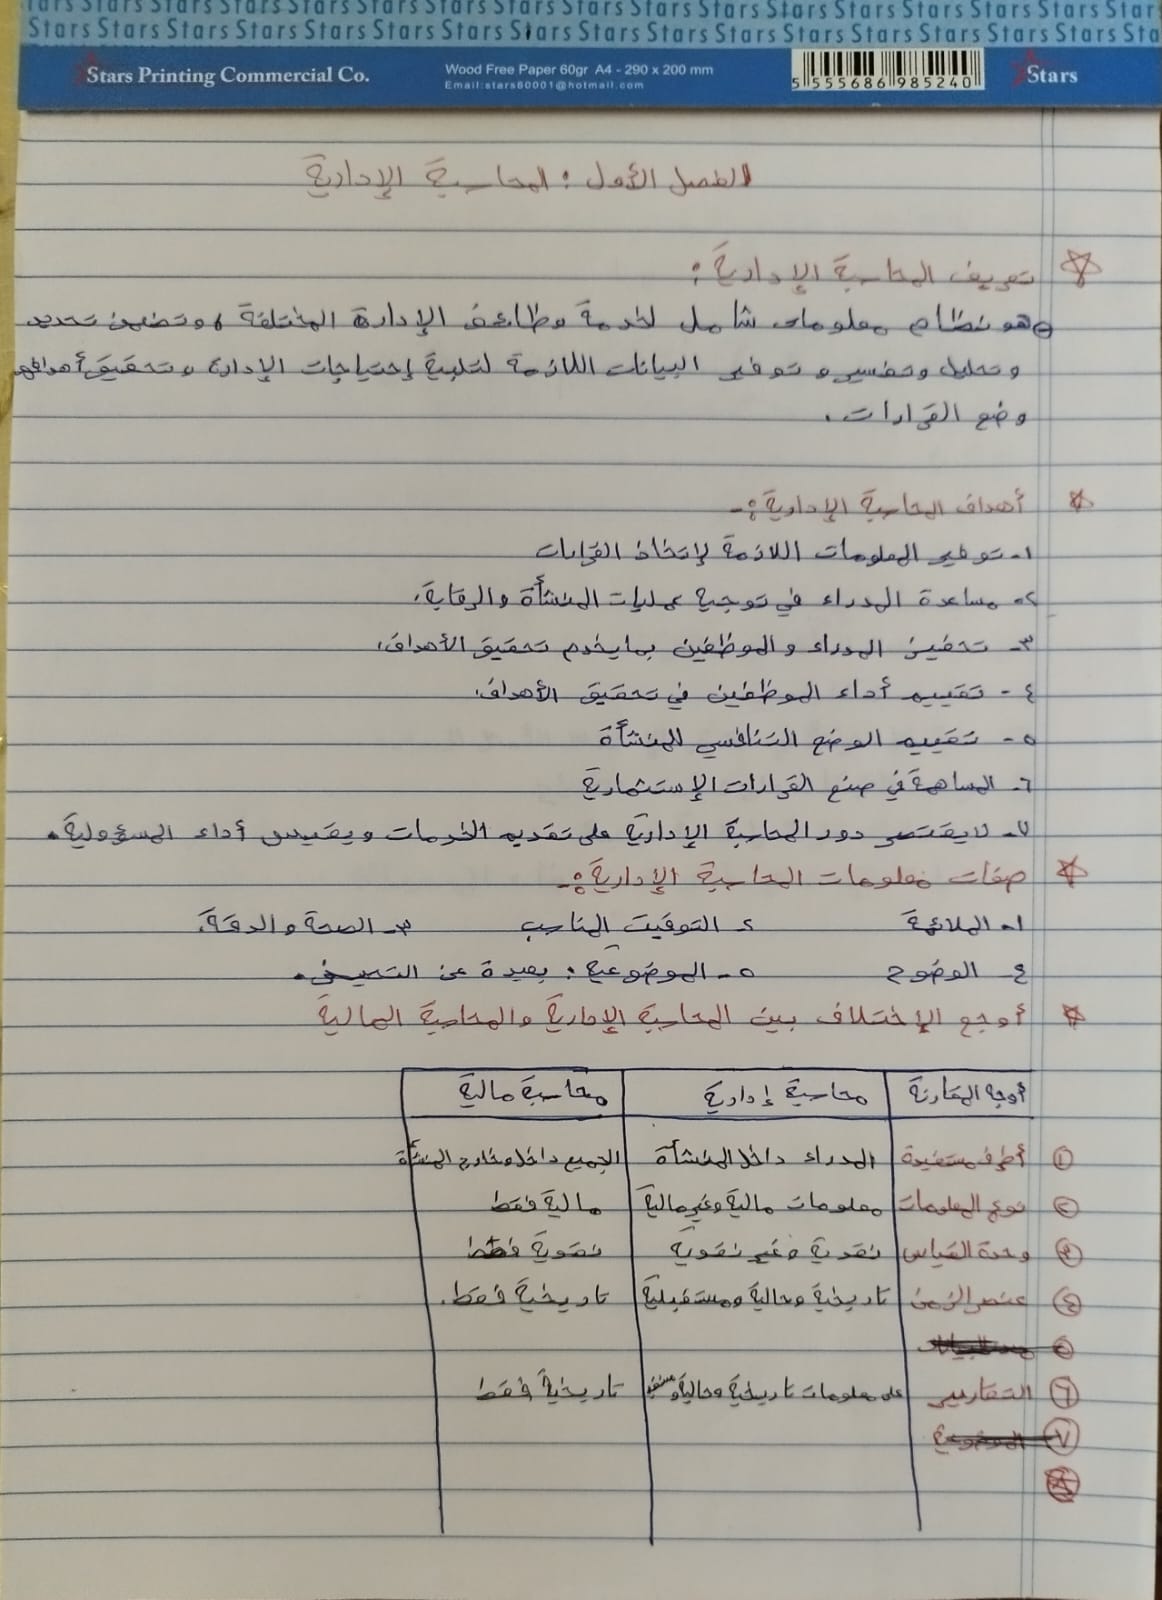 Stars Stars Stars Stars Stars Stars Stars Stars Stars Stars Stars Stars Stars Stars Stars Stars
Stars Stars Stars Stars Stars Stars Stars Stars Stars Stars Stars Stars Stars Stars Stars Stars
Stars Printing Commercial Co.
Wood Free Paper 60gr A4 - 290 x 200 mm
Email:stars60001@hotmail.com
5 555686 985240
Stars
الفصل الأول : المحاسبة الإدارية
تعريف المحاسبة الإدارية :
هو نظام معلومات شامل لخدمة وظائف الإدارة المختلفة ، وتضمن تحديد
وتحليل وتفسير و توفير البيانات اللازمة لتلبية إحتياجات الإدارة و تحقيق أهدافهم
وضع القرارات .
أهداف المحاسبة الإدارية :-
١- توفير المعلومات اللازمة لإتخاذ القرارات
٢- مساعدة المدراء في توجيه عمليات المنشأة والرقابة.
٣- تحفيز المدراء و الموظفين بما يخدم تحقيق الأهداف.
٤ - تقييم أداء الموظفين في تحقيق الأهداف.
٥- تقييم الوضع التنافسي للمنشأة
٦- المساهمة في صنع القرارات الإستثمارية
٧- لا يقتصر دور المحاسبة الإدارية على تقديم الخدمات ويقيس أداء المسؤولية.
صفات معلومات المحاسبة الإدارية :-
١- الملائمة ٢ التوقيت المناسب ٣- الصحة والدقة.
٤- الوضوح ٥- الموضوعية : بعيدة عن التحيز.
أوجع الإختلاف بين المحاسبة الإدارية والمحاسبة المالية
أوجه المقارنة محاسبة إدارية محاسبة مالية
① أطرف مستفيدة المدراء داخل المنشأة الجميع داخل وخارج المنشأة
② نوع المعلومات معلومات مالية وغير مالية مالية فقط
③ وحدة القياس نقدية وغير نقدية نقدية فقط
④ عنصر الزمن تاريخية وحالية ومستقبلية تاريخية فقط.
⑤
⑥ التقارير على معلومات تاريخية وحالية و تاريخية فقط
⑦
⑧